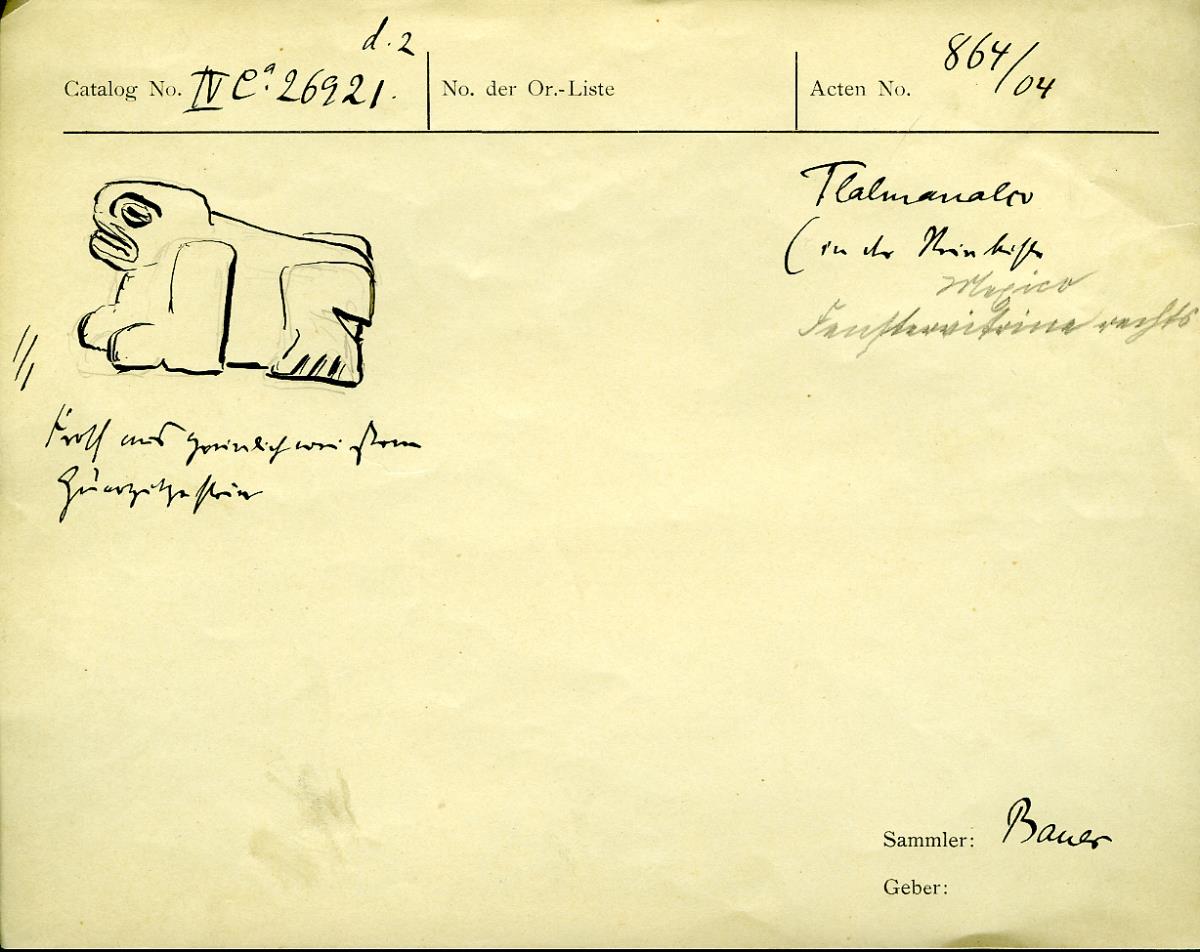 d. 2
Catalog No. IV Ca. 26921.
No. der Or.-Liste
Acten No. 864/04
Tlalmanalco
(in der
Mexico
Fenstervitrine rechts
1/1
Frosch aus grünlich
Sammler: Bauer
Geber: